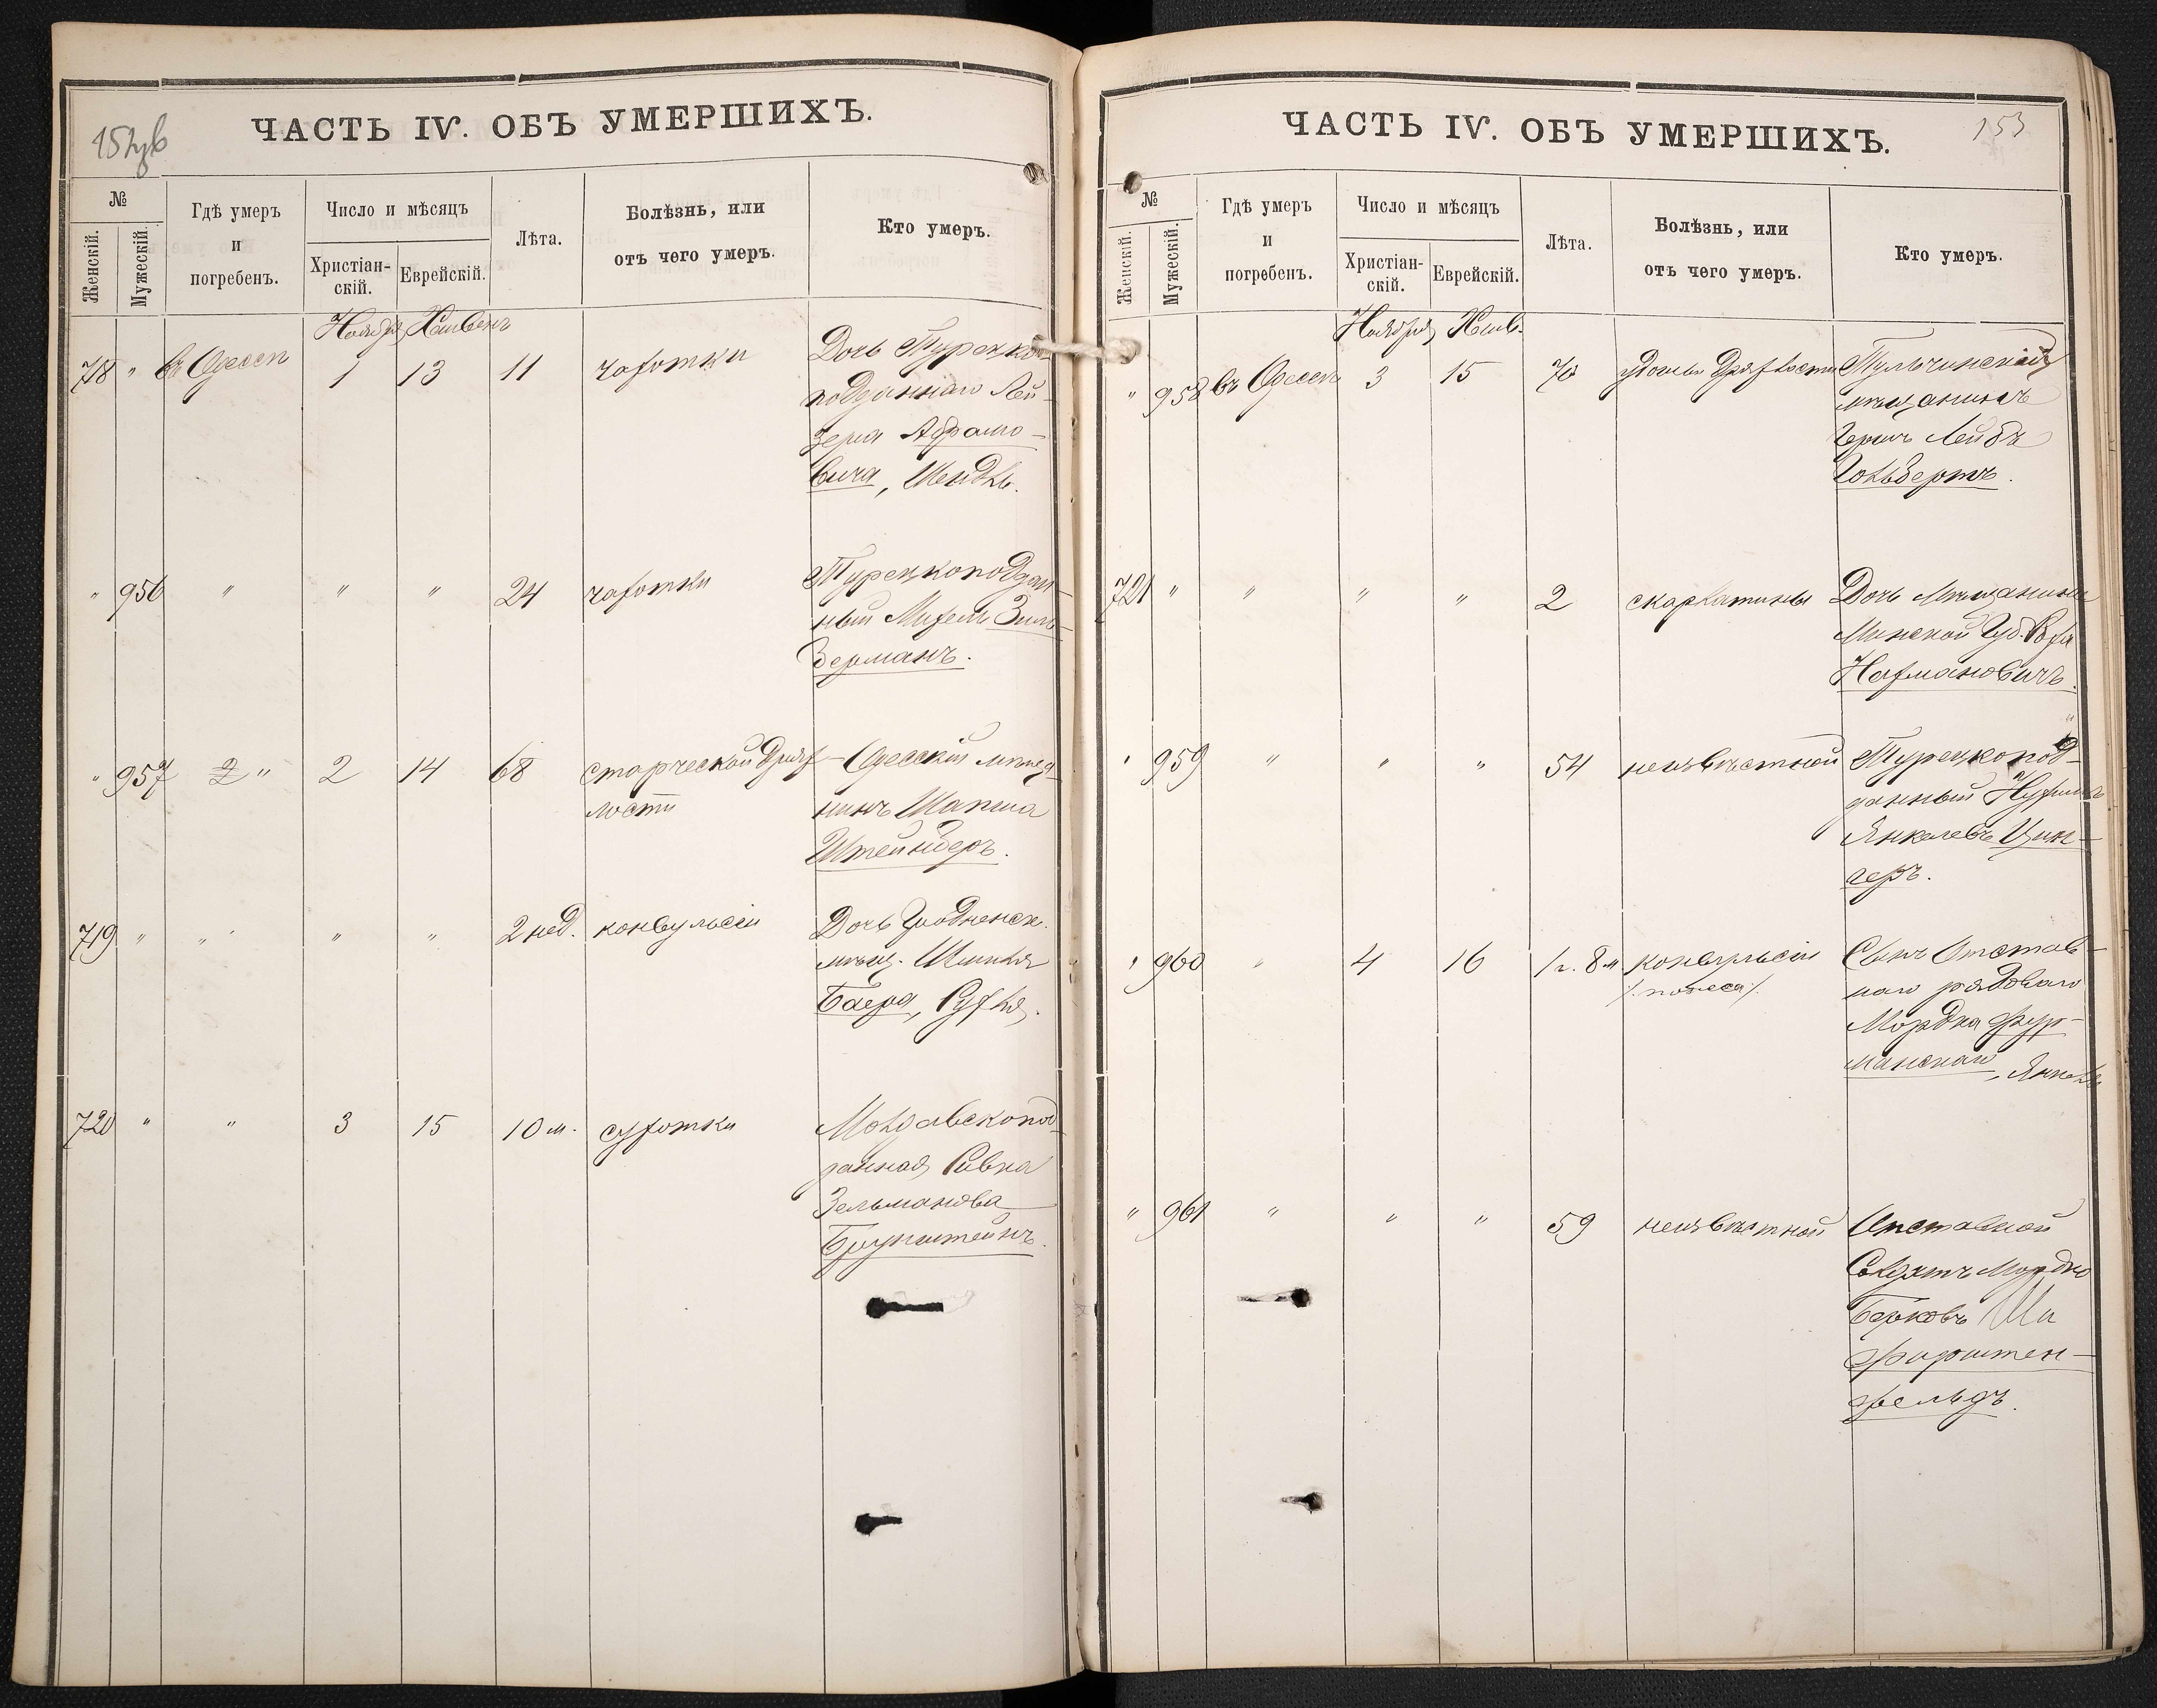 ЧАСТЬ IV. ОБЪ УМЕРШИХЪ.
№
Женскій.
Мужескій.
Гдѣ умеръ
и
погребенъ.
Число и мѣсяцъ
Христіан-
скій.
Еврейскій.
Лѣта.
Болѣзнь, или
отъ чего умеръ.
Кто умеръ.
Ноября Хешвенъ
718 " въ Одессѣ 1 13 11 чахотки Дочь Турецко-
подданнаго Лей-
зера Абрамо-
вича, Шендль.
" 956 " " " 24 чахотки Турецкоподдан-
ный Михель Зиль-
берманъ.
" 957 2 " 2 14 68 старческой дрях- Одесскій мѣща-
лости нинъ Шапша
Штейнберъ.
719 " " " " 2 нед. конвульсіи Дочь Гродненск.
мѣщ. Шмиля
Баера, Рухля.
720 " " 3 15 10 м. сухотки Молдавскопод-
данная Ривка
Зельманова
Бронштейнъ.
ЧАСТЬ IV. ОБЪ УМЕРШИХЪ.
153
№
Женскій.
Мужескій.
Гдѣ умеръ
и
погребенъ.
Число и мѣсяцъ
Христіан-
скій.
Еврейскій.
Лѣта.
Болѣзнь, или
отъ чего умеръ.
Кто умеръ.
Ноября Хешв.
" 958 въ Одессѣ 3 15 70 дряхлости Тульчинскій
мѣщанинъ
Гершъ Лейбъ
Гольбертъ.
721 " " " " 2 скарлатины Дочь Мѣщанина
Минской Губ.
Нахмановичъ.
" 959 " " " 54 неизвѣстной Турецкопод-
данный Нухимъ
Янкелевъ Цин-
геръ.
" 960 " 4 16 1 г. 8 м конвульсіи Сынъ Отстав-
наго рядоваго
Мордка Фур-
манскаго, Янкель
" 961 " " " 59 неизвѣстной Отставной
Солдатъ Мордко
Берковъ Ши
фельдъ.